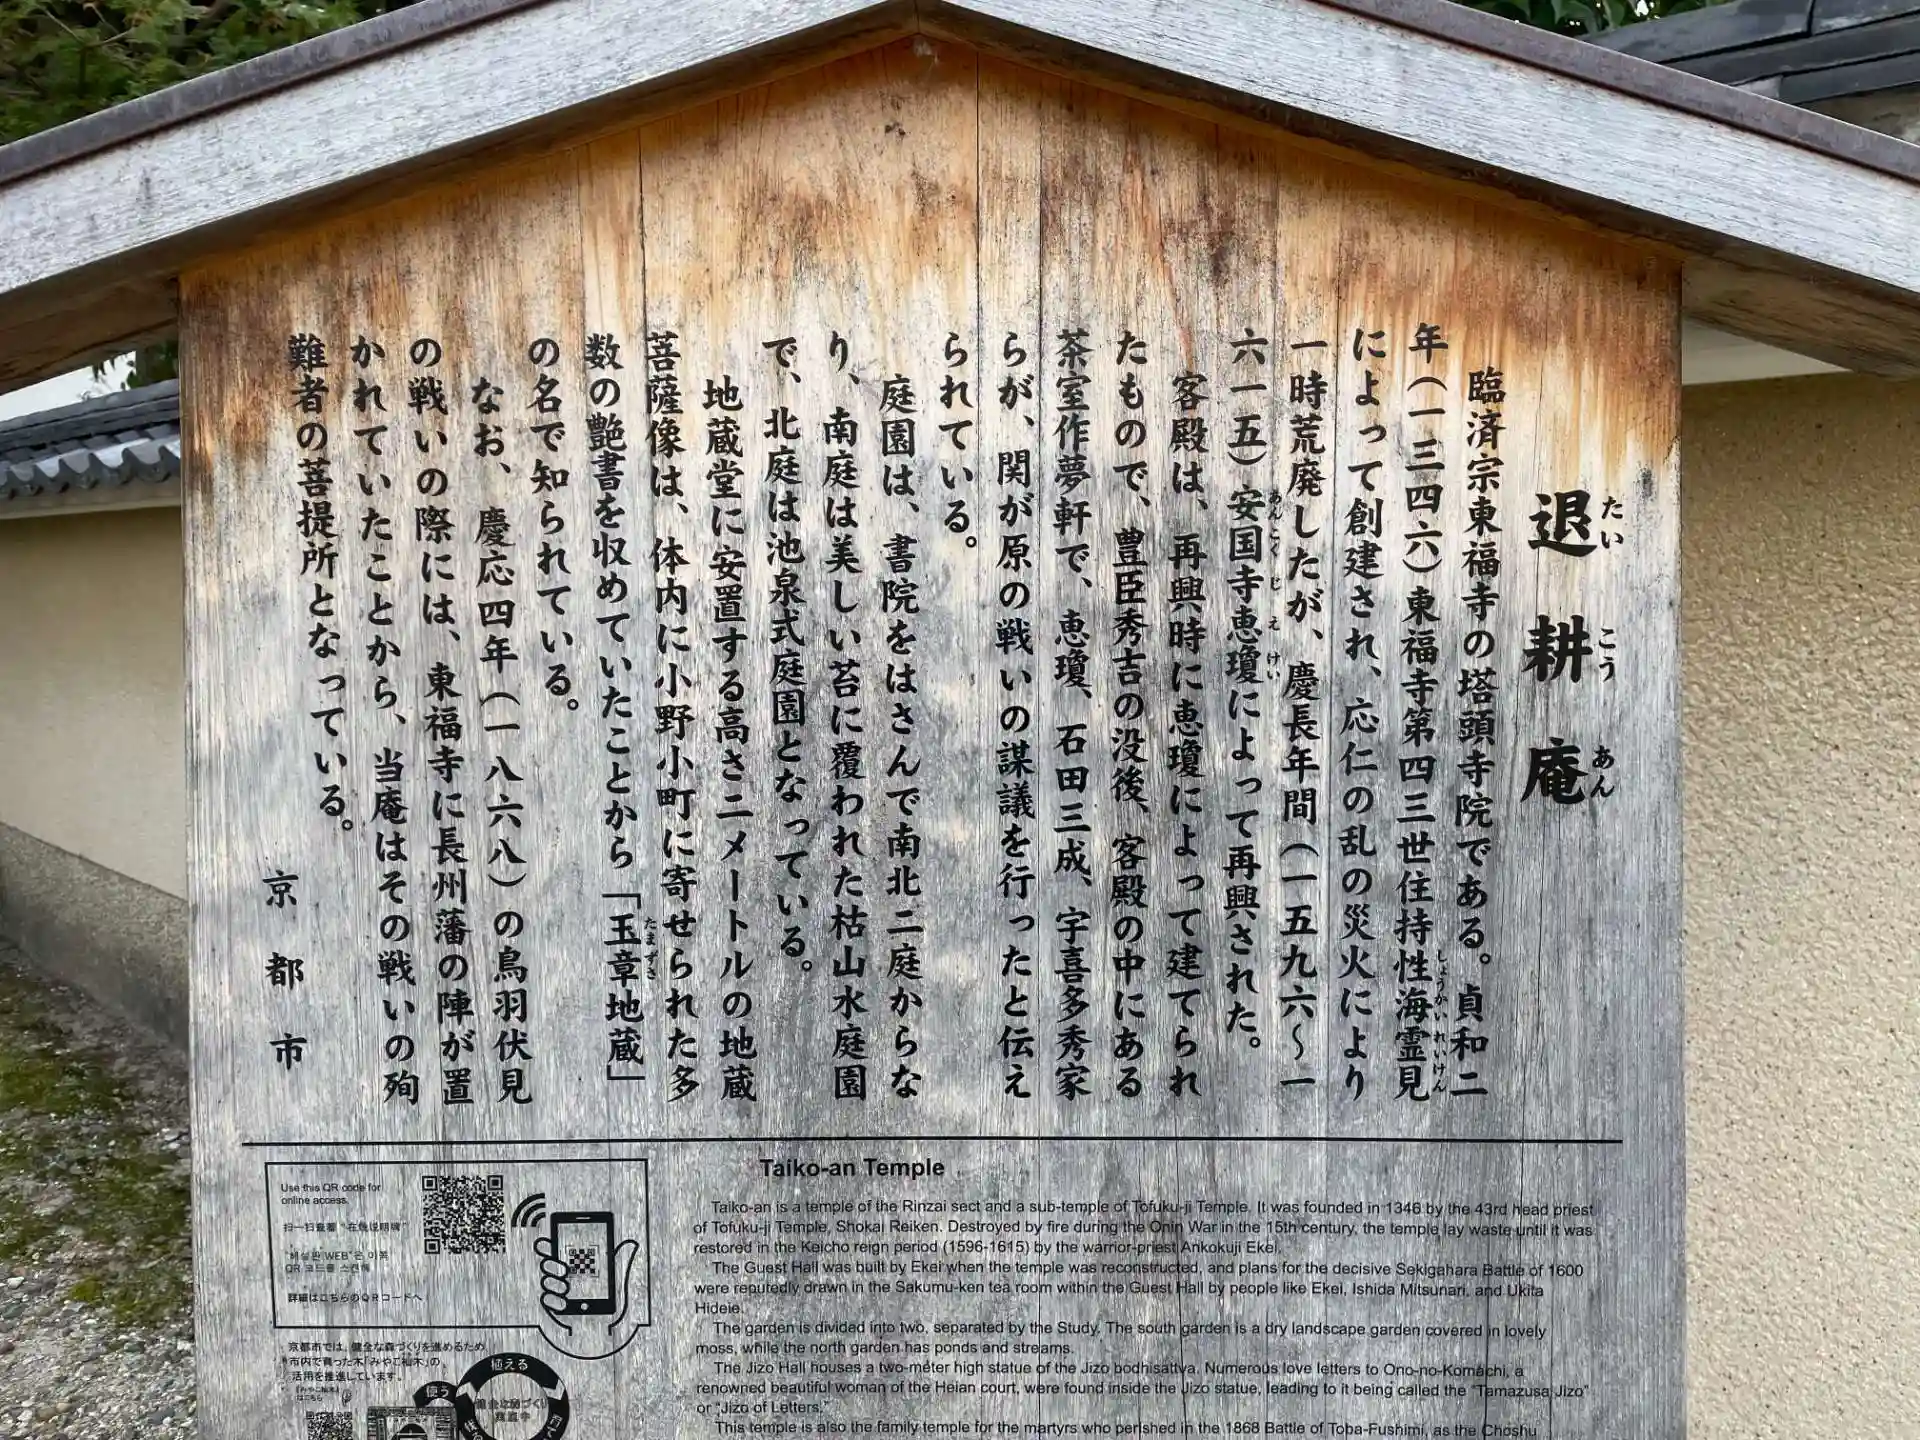 退耕庵
たいこうあん
臨済宗東福寺の塔頭寺院である。貞和二
年（一三四六）東福寺第四三世住持性海霊見
しょうかいれいけん
によって創建され、応仁の乱の災火により
一時荒廃したが、慶長年間（一五九六～一
六一五）安国寺恵瓊によって再興された。
あんこくじえけい
客殿は、再興時に恵瓊によって建てられ
たもので、豊臣秀吉の没後、客殿の中にある
茶室作夢軒で、恵瓊、石田三成、宇喜多秀家
らが、関が原の戦いの謀議を行ったと伝え
られている。
庭園は、書院をはさんで南北二庭からな
り、南庭は美しい苔に覆われた枯山水庭園
で、北庭は池泉式庭園となっている。
地蔵堂に安置する高さ二メートルの地蔵
菩薩像は、体内に小野小町に寄せられた多
数の艶書を収めていたことから「玉章地蔵」
たまずさ
の名で知られている。
なお、慶応四年（一八六八）の鳥羽伏見
の戦いの際には、東福寺に長州藩の陣が置
かれていたことから、当庵はその戦いの殉
難者の菩提所となっている。
京都市
Use this QR code for
online access.
扫一扫查看“在线说明牌”
"해설판 WEB"은 이쪽
QR 코드를 스캔해
詳細はこちらのQRコードへ
京都市では、健全な森づくりを進めるため
市内で育った木「みやこ杣木」の
活用を推進しています。
植える
使う
Taiko-an Temple
Taiko-an is a temple of the Rinzai sect and a sub-temple of Tofuku-ji Temple. It was founded in 1346 by the 43rd head priest
of Tofuku-ji Temple, Shokai Reiken. Destroyed by fire during the Onin War in the 15th century, the temple lay waste until it was
restored in the Keicho reign period (1596-1615) by the warrior-priest Ankokuji Ekei.
The Guest Hall was built by Ekei when the temple was reconstructed, and plans for the decisive Sekigahara Battle of 1600
were reputedly drawn in the Sakumu-ken tea room within the Guest Hall by people like Ekei, Ishida Mitsunari, and Ukita
Hideie.
The garden is divided into two, separated by the Study. The south garden is a dry landscape garden covered in lovely
moss, while the north garden has ponds and streams.
The Jizo Hall houses a two-meter high statue of the Jizo bodhisattva. Numerous love letters to Ono-no-Komachi, a
renowned beautiful woman of the Heian court, were found inside the Jizo statue, leading to it being called the "Tamazusa Jizo"
or "Jizo of Letters."
This temple is also the family temple for the martyrs who perished in the 1868 Battle of Toba-Fushimi, as the Choshu